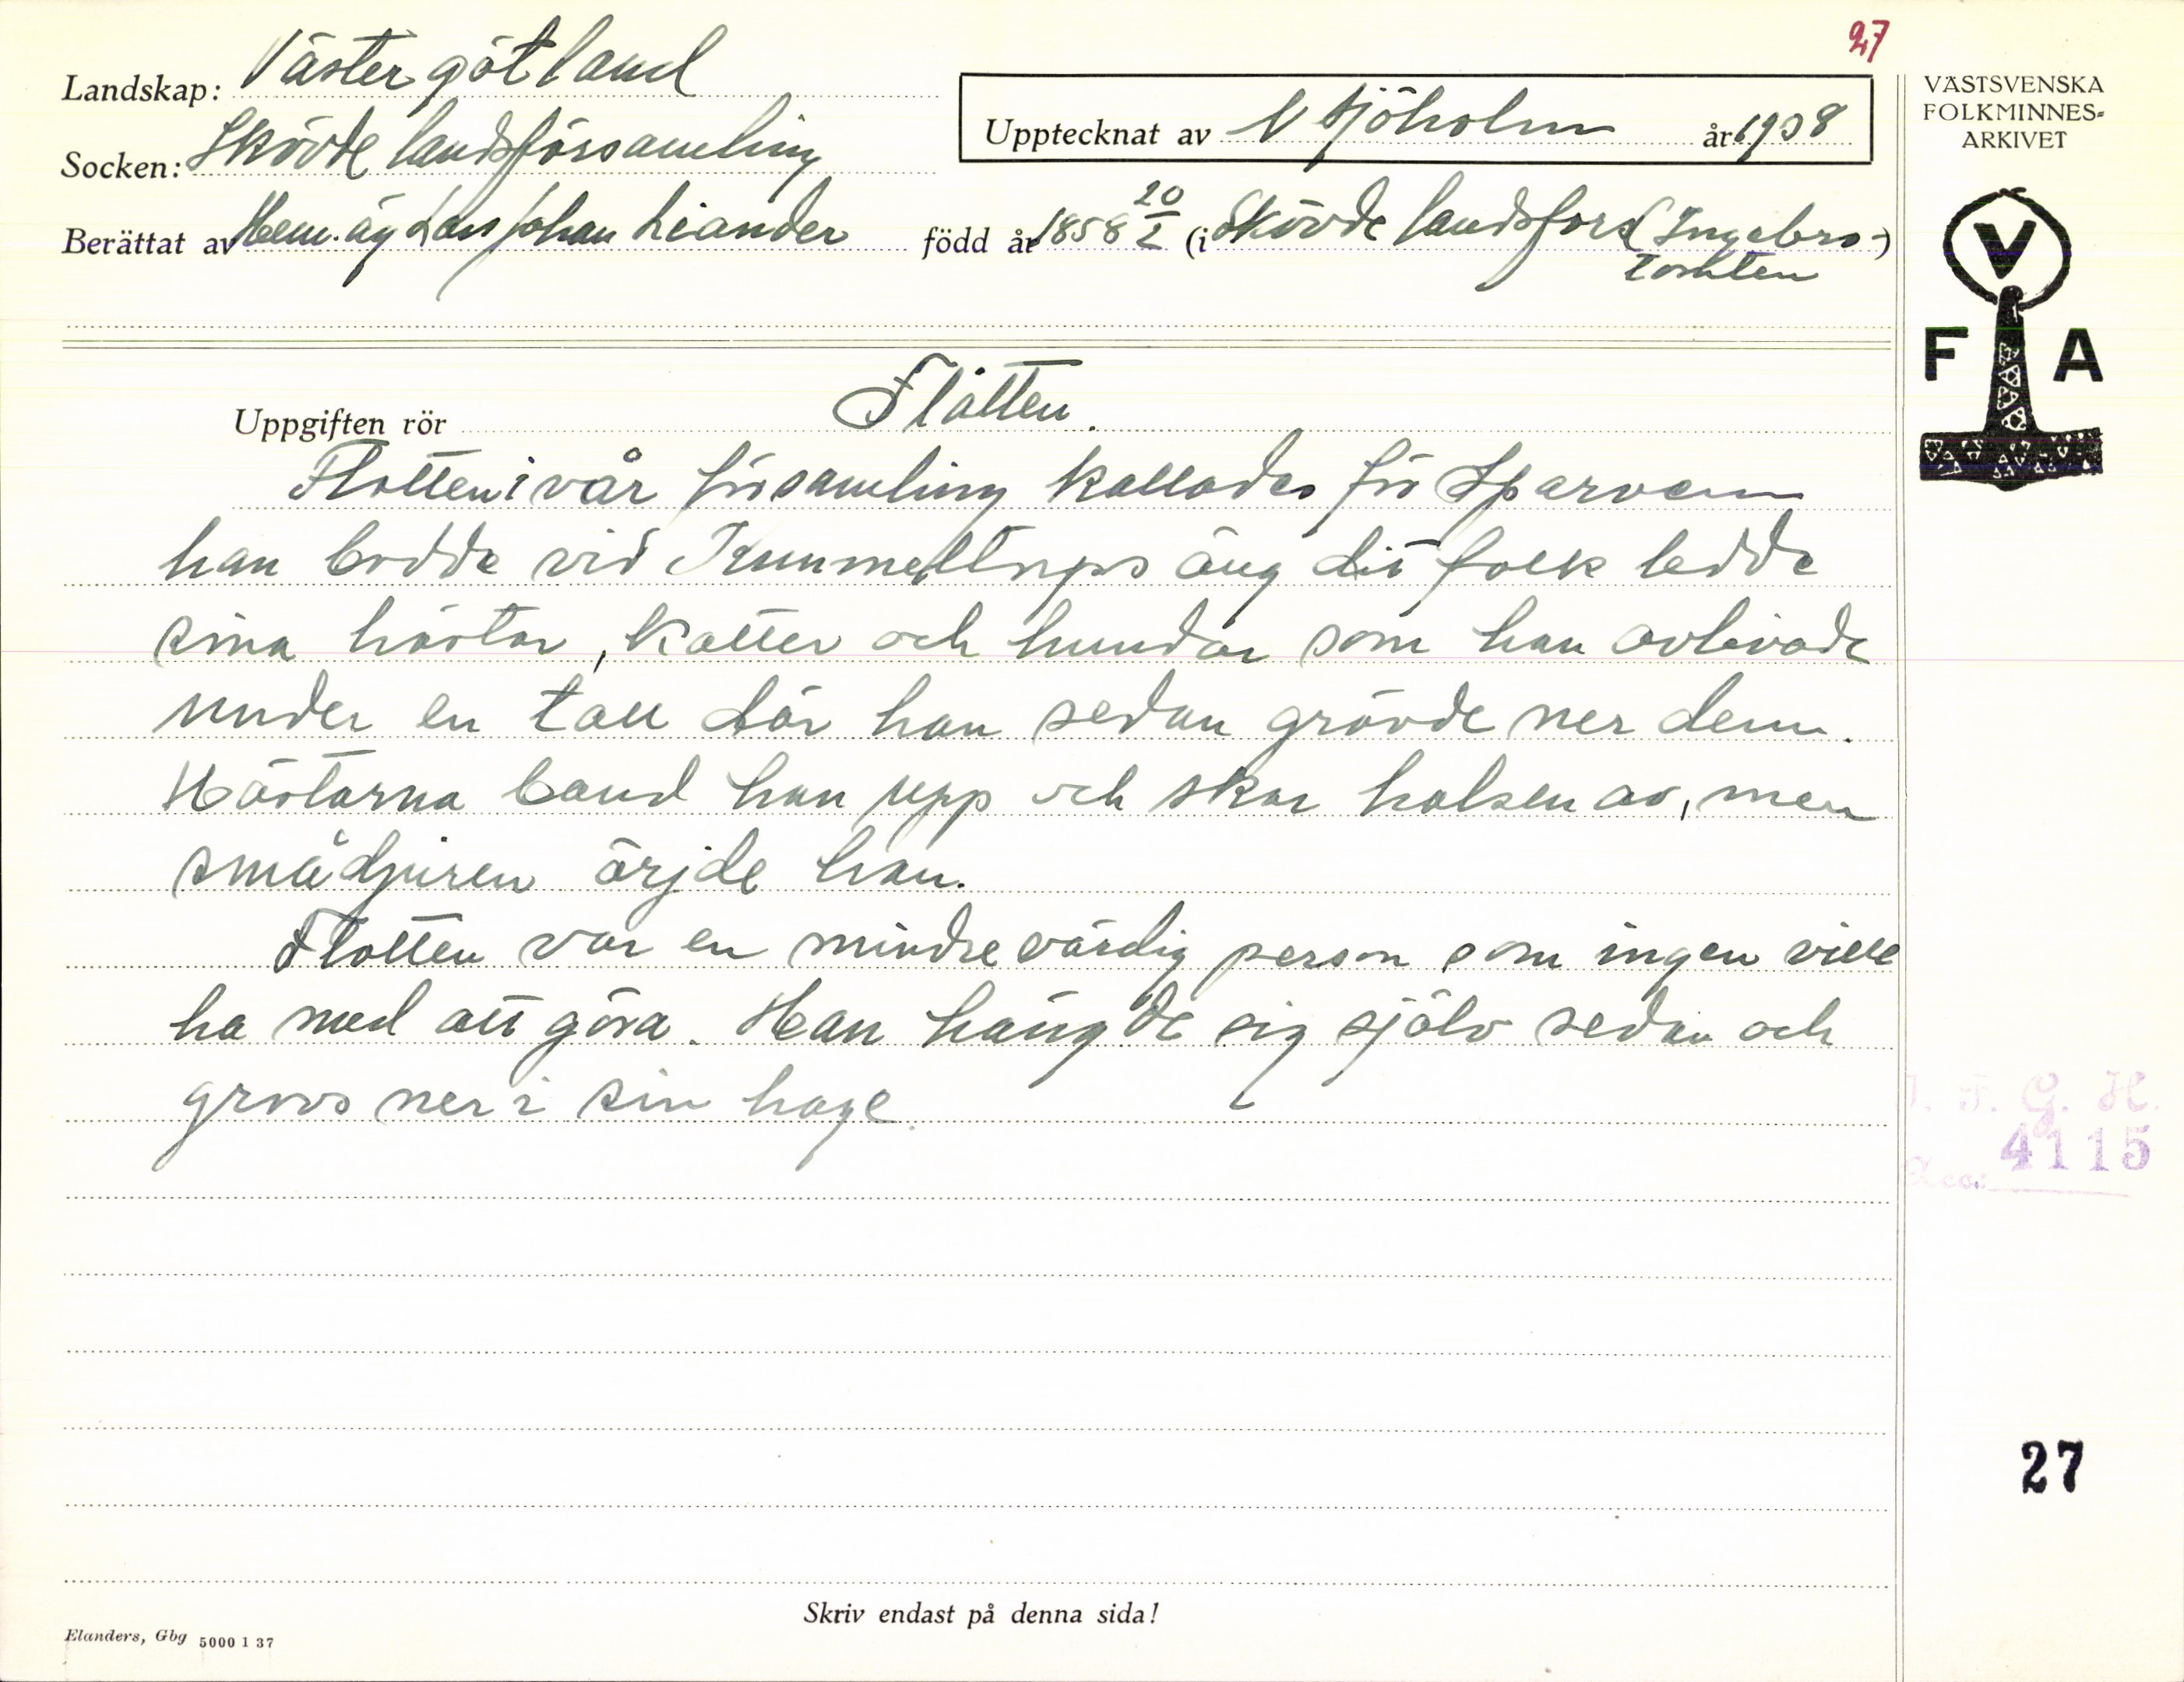 27
Landskap: Västergötland
Socken: Skövde landsförsamling
Upptecknat av N Sjöholm år 1938
Berättat av Hem.äg Lars Johan Leander född år 1858 20/2 (i Skövde landsförs (Ingebro-)
tomten
VÄSTSVENSKA
FOLKMINNES-
ARKIVET
V
F A
Uppgiften rör Flåtten.
Flotten i vår församling kallades för Sparven
han bodde vid äng dit folk ledde
sina hästar, katter och hundar som han avlivade
under en tall där han sedan grävde ner dem.
Hästarna band han upp och skar halsen av, men
smådjuren örjde han.
Flotten var en mindre värdig person som ingen ville
ha med att göra. Han hängde sig själv sedan och
grovs ner i sin hage.
I. F. G. H.
Acc: 4115
27
Skriv endast på denna sida!
Elanders, Gbg 5000 1 37